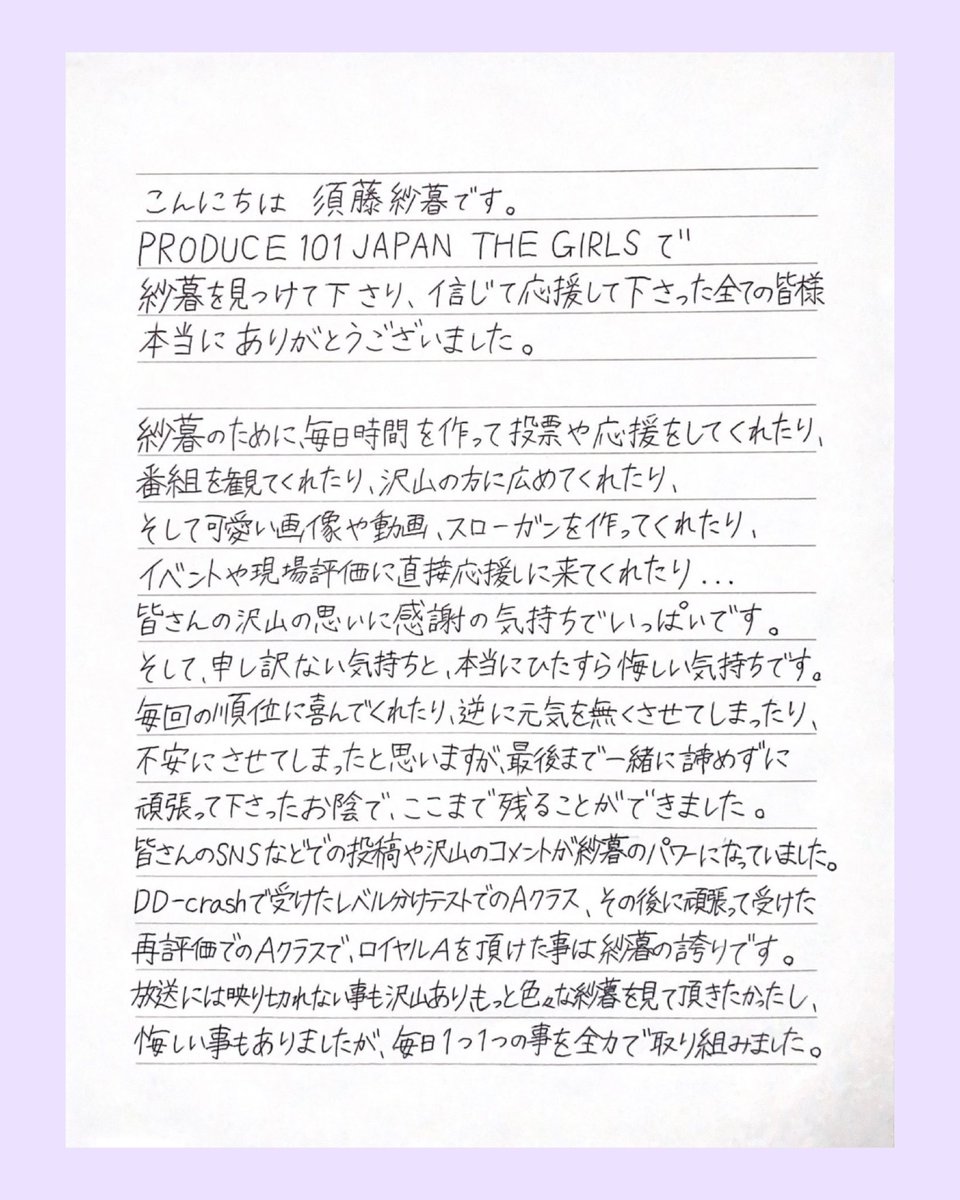 こんにちは 須藤紗暮です。
PRODUCE 101 JAPAN THE GIRLS で
紗暮を見つけて下さり、信じて応援して下さった全ての皆様
本当にありがとうございました。
紗暮のために、毎日時間を作って投票や応援をしてくれたり、
番組を観てくれたり、沢山の方に広めてくれたり、
そして可愛い画像や動画、スローガンを作ってくれたり、
イベントや現場評価に直接応援しに来てくれたり...
皆さんの沢山の思いに感謝の気持ちでいっぱいです。
そして、申し訳ない気持ちと、本当にひたすら悔しい気持ちです。
毎回の順位に喜んでくれたり、逆に元気を無くさせてしまったり、
不安にさせてしまったと思いますが、最後まで一緒に諦めずに
頑張って下さったお陰で、ここまで残ることができました。
皆さんのSNSなどでの投稿や沢山のコメントが紗暮のパワーになっていました。
DD-crashで受けたレベル分けテストでのAクラス、その後に頑張って受けた
再評価でのAクラスで、ロイヤルAを頂けた事は紗暮の誇りです。
放送には映り切れない事も沢山あり、もっと色々な紗暮を見て頂きたかったし、
悔しい事もありましたが、毎日1つ1つの事を全力で取り組みました。